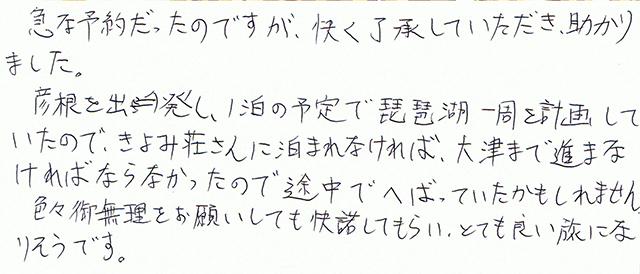 急な予約だったのですが、快く了承していただき、助かり
ました。
彦根を出発し、1泊の予定で琵琶湖一周を計画して
いたので、きよみ荘さんに泊まれなければ、大津まで進まな
ければならなかったので途中でへばっていたかもしれません
色々御無理をお願いしても快諾してもらい、とても良い旅にな
りそうです。